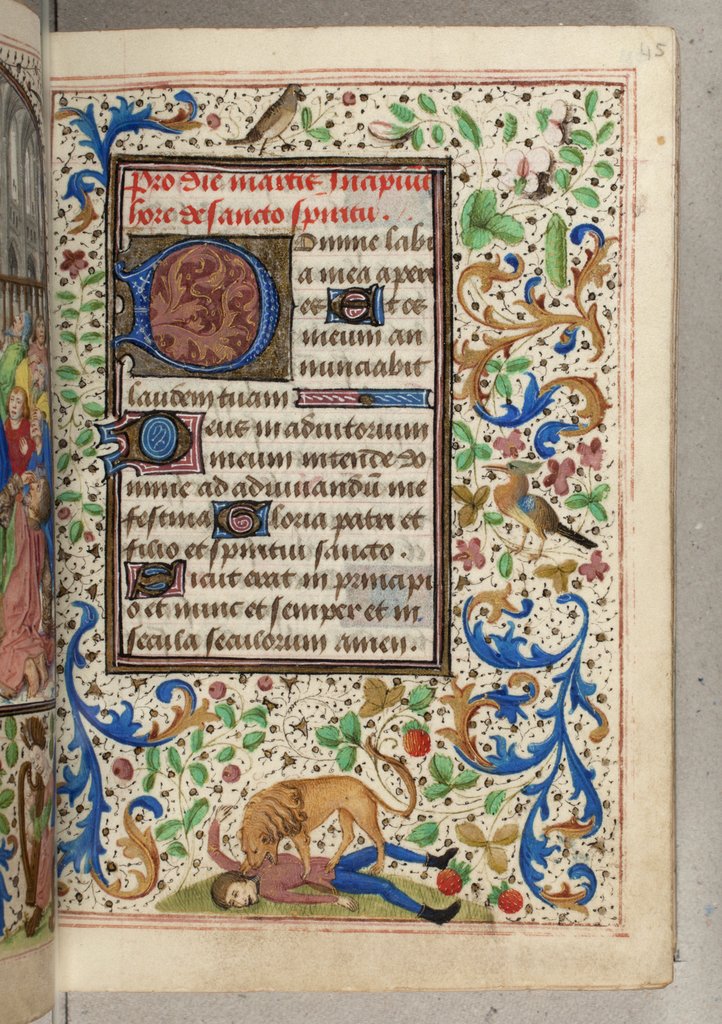 45
Pro die martis Incipiūt
hore de sancto spiritu .
Domine labi
a mea aper
ies Et os
meum an
nunciabit
laudem tuam
Deus in adiutorium
meum intende do
mine ad adiuuandū me
festina Gloria patri et
filio et spiritui sancto .
Sicut erat in principi
o et nunc et semper et in
secula seculorum amen .